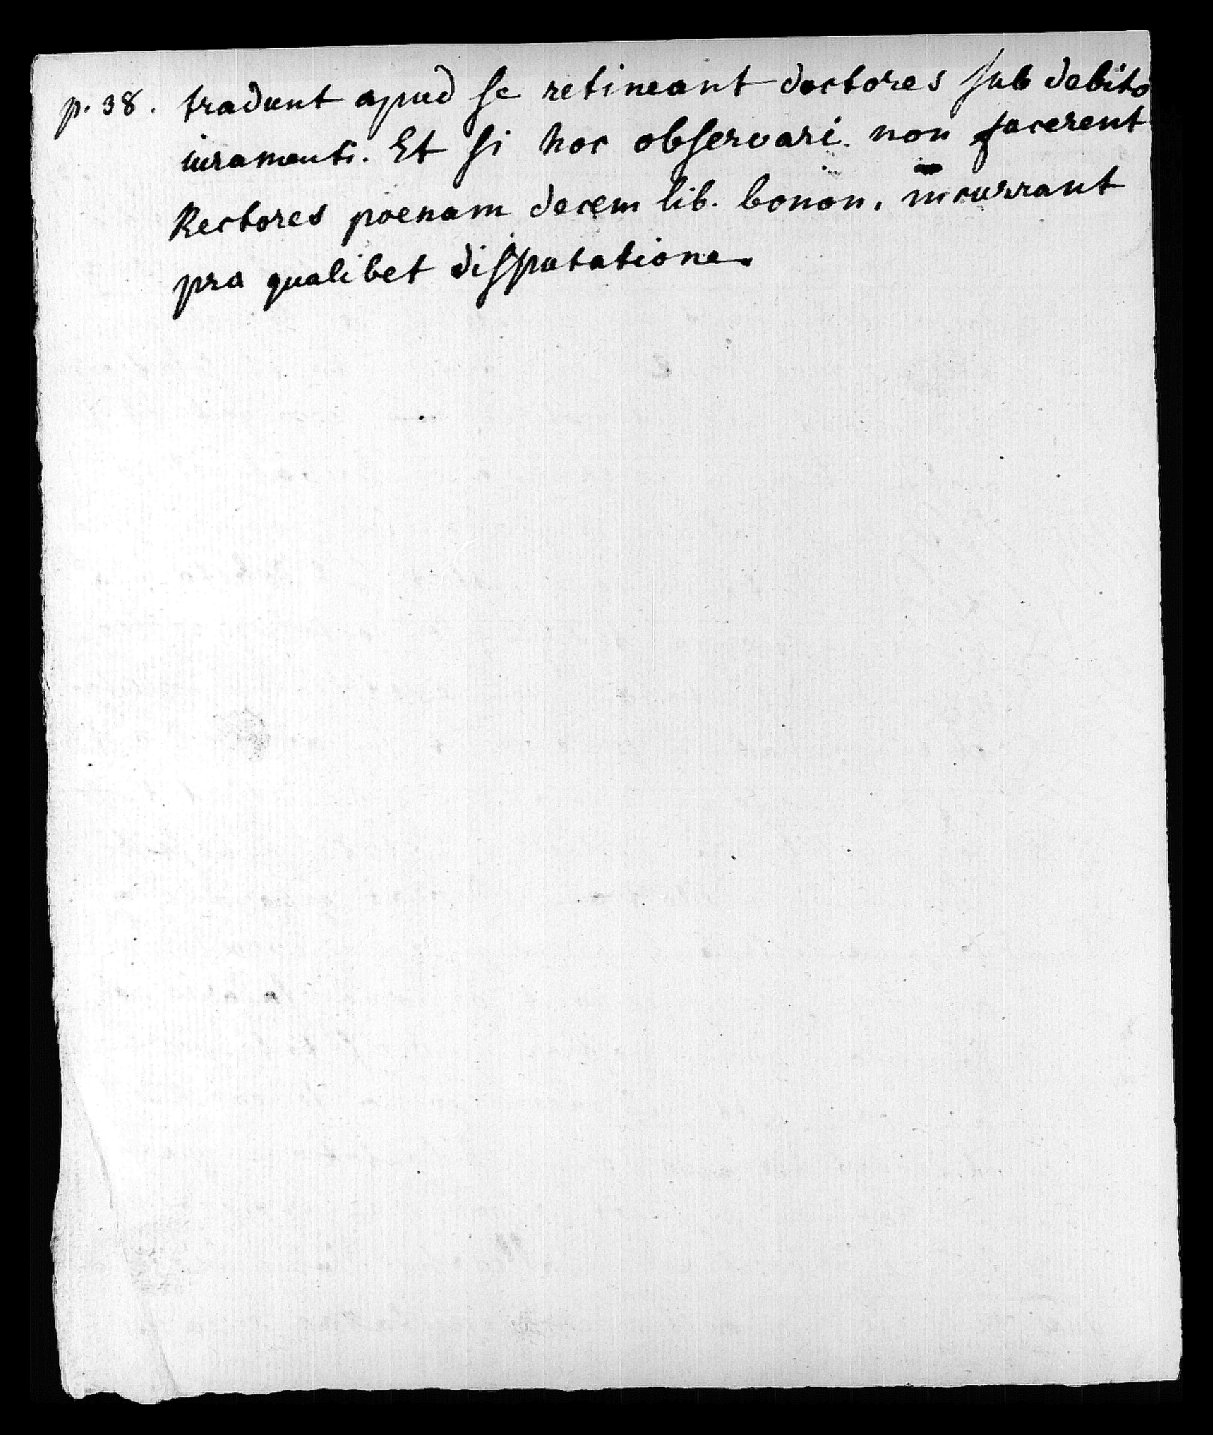 p. 38. tradunt apud se retineant doctores sub debito
iuramenti. Et si hoc observari non facerent
Rectores poenam decem lib. bonon. incurrant
pro qualibet disputatione.